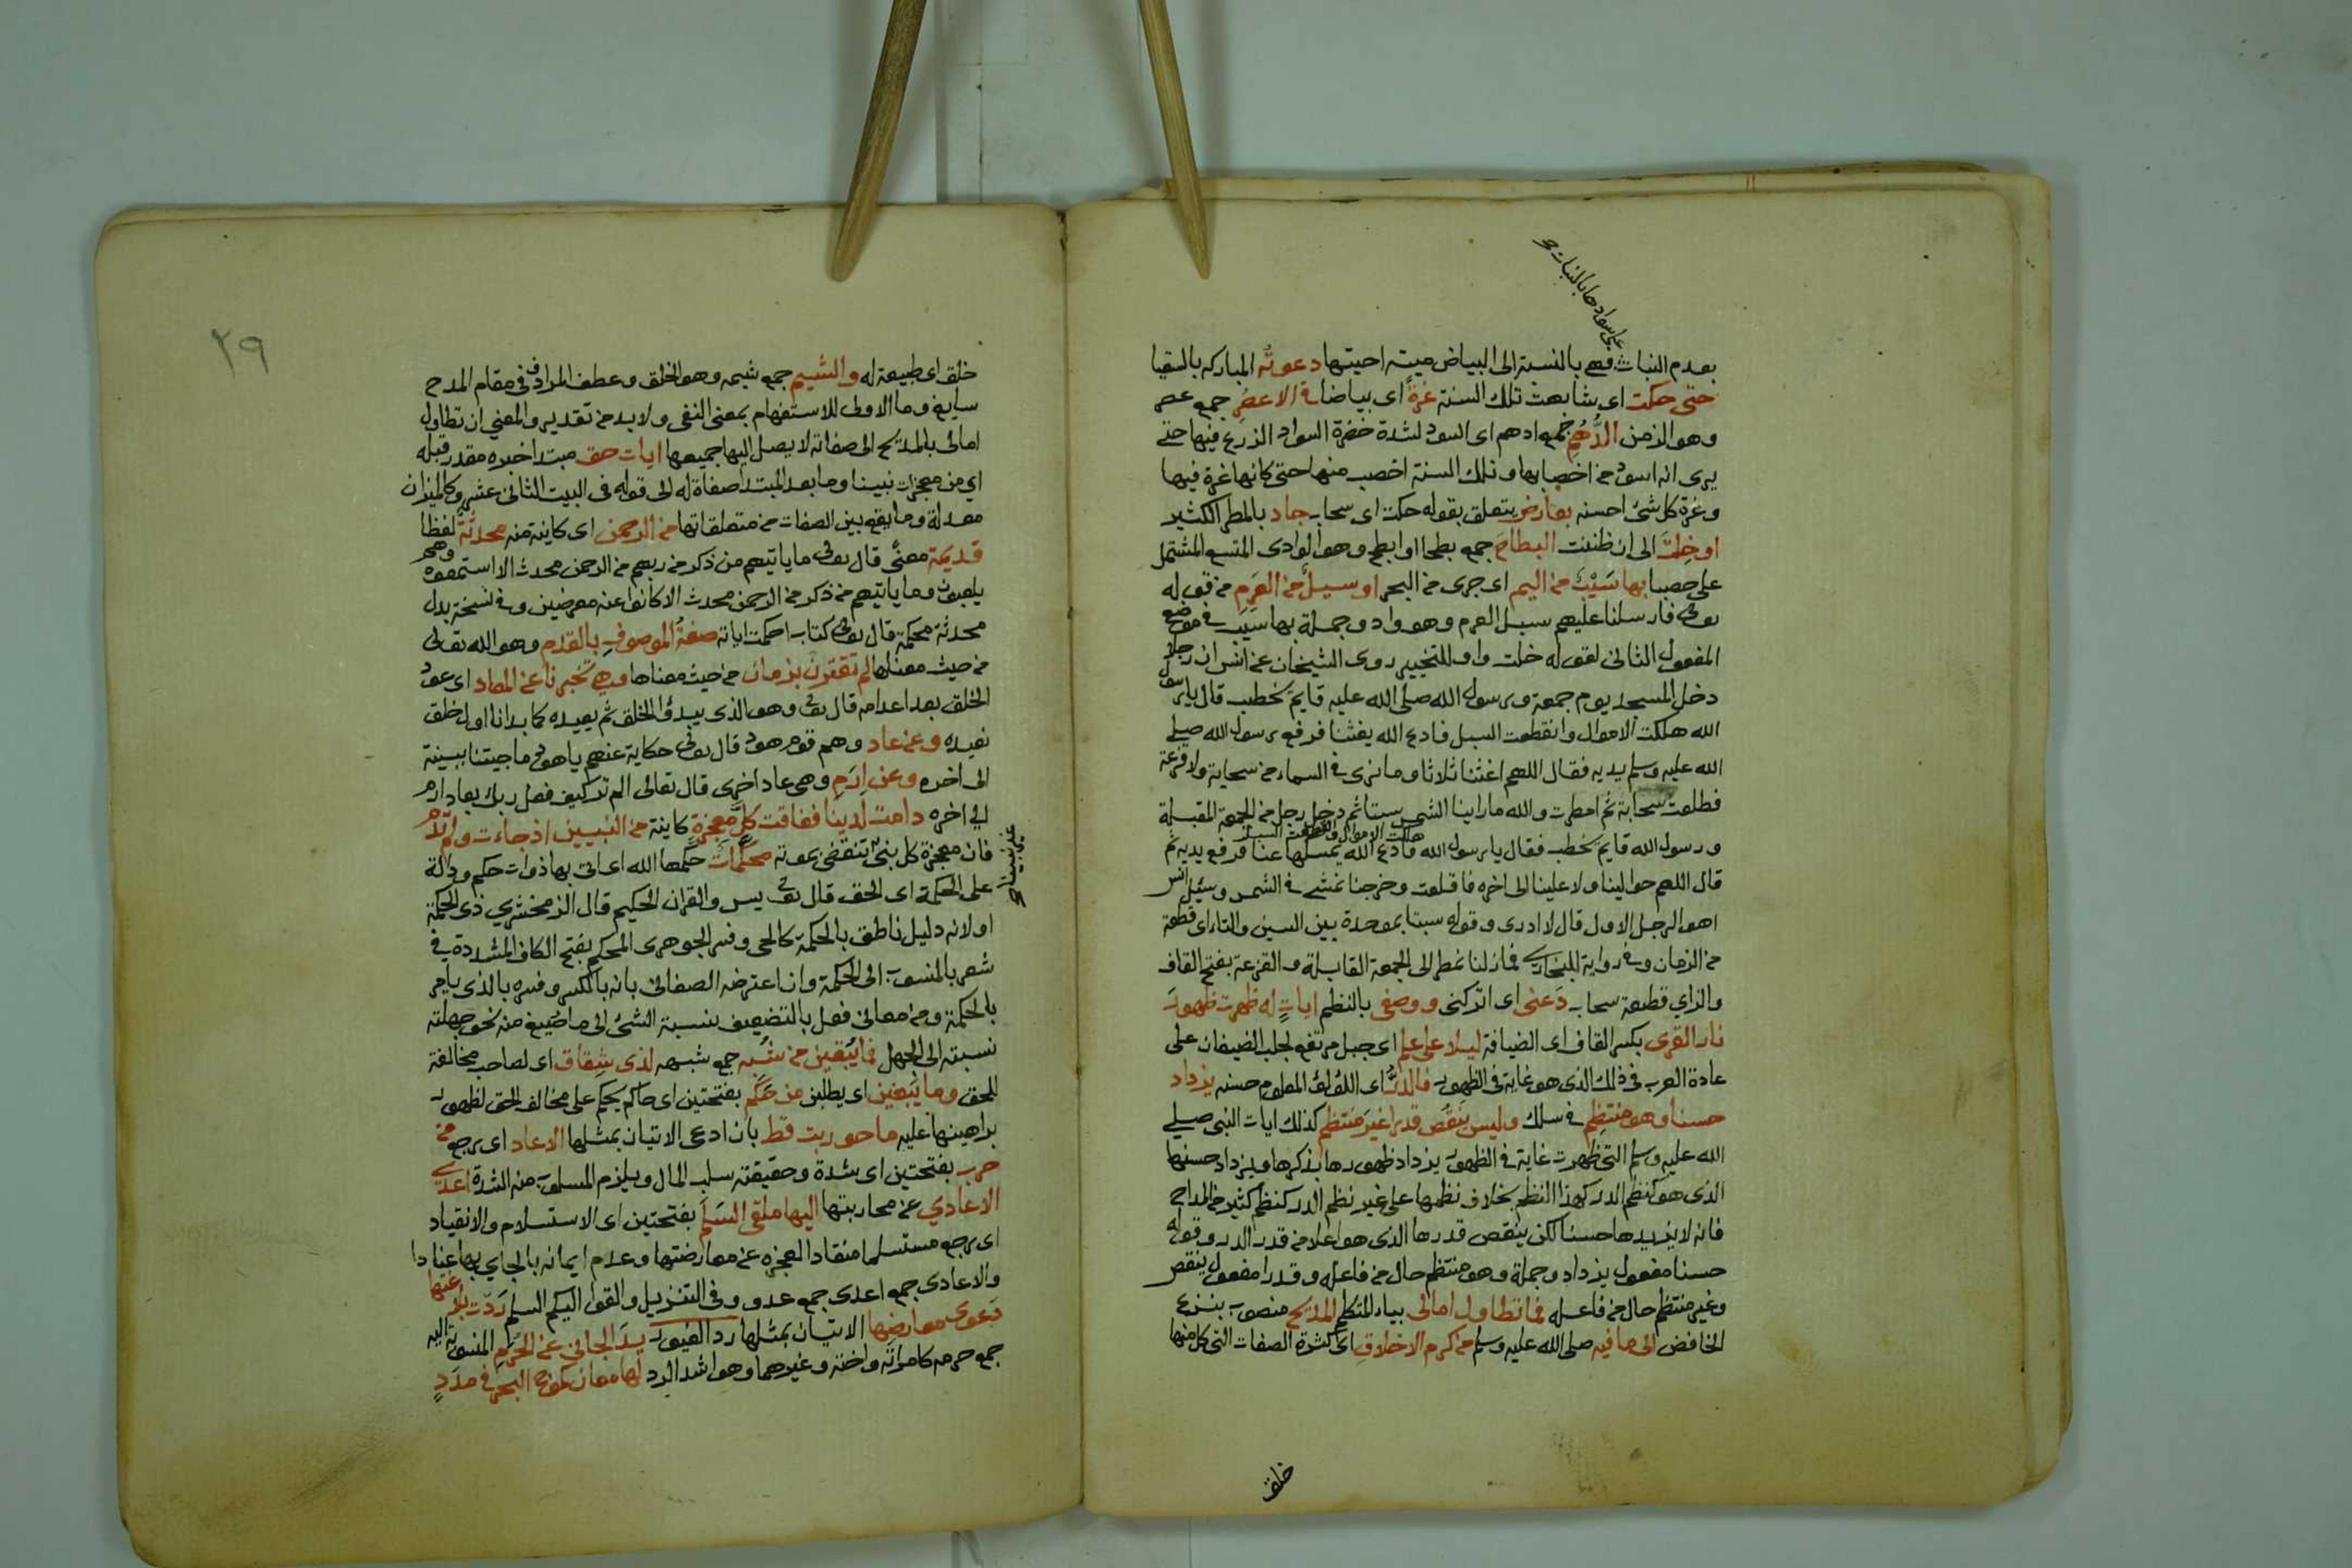 على سوادها بالنبات صح
بعدم النبات فهي بالنسبة الى البياض ميتة احيتها دعوته المباركه بالسقيا
حتى حكت اى شابهت تلك السنة غرة اى بياضا فى الاعصر جمع عصر
وهو الزمن الدهم جمع ادهم اى السود لشدة خضرة السواد الزرع فيها حتى
يرى انه اسود من اخصابها وتلك السنة اخصب منها حتى كانها غرة فيها
وغرة كل شئ احسنه بعارض يتعلق بقوله حكت اى سحاب جاد بالمطر الكثير
او خلت الى ان ظننت البطاح جمع بطحا او ابطح وهو الوادى المتسع المشتمل
على حصبا بها سيب من اليم اى جرى من البحر او سيل من العرم من قوله
تعالى فارسلنا عليهم سيل العرم وهو واد وجملة بها سيب فى موضع
المفعول الثانى لقوله خلت واو للتخيير روى الشيخان عن انس ان رجلا
دخل المسجد يوم جمعة ورسول الله صلى الله عليه قايم يخطب قال يا رسول
الله هلكت الاموال وانقطعت السبل فادع الله يغثنا فرفع رسول الله صلى
الله عليه وسلم يديه فقال اللهم اغثنا ثلاثا وما نرى فى السماء من سحابة ولا قزعة
فطلعت سحابة ثم امطرت والله ما راينا الشمس ستا ثم دخل رجل من الجمعة المقبلة
هلكت الاموال وانقطعت السبل
ورسول الله قايم يخطب فقال يا رسول الله فادع الله يمسكها عنا فرفع يديه ثم
قال اللهم حوالينا ولا علينا الى اخره فاقلعت وخرجنا نمشى فى الشمس وسئل انس
اهو الرجل الاول قال لا ادرى وقوله سبتا بموحدة بين السين والتاء اى قطعة
من الزمان وفى رواية للبخارى فمازلنا نمطر الى الجمعة القابلة والقزعة بفتح القاف
والزاي قطعة سحاب دعنى اى اتركنى ووصفى بالنظم ايات له ظهرت ظهور
نار القرى بكسر القاف اى الضيافة ليلا على علم اى جبل مرتفع لجلب الضيفان على
عادة العرب فى ذلك الذى هو غاية فى الظهور فالدر اى اللؤلؤ المعلوم حسنه يزداد
حسنا وهو منتظم فى سلك وليس ينقص قدرا غير منتظم كذلك ايات النبى صلى
الله عليه وسلم التى ظهرت غاية فى الظهور يزداد ظهورها بذكرها ويزداد حسنها
الذى هو كنظم الدر كهذا النظم بخلاف نظمها على غير نظم الدر كنظم كثير من المداح
فانه لا يزيدها حسنا لكن ينقص قدرها الذى هو اعلا من قدر الدر وقوله
حسنا مفعول يزداد وجملة وهو منتظم حال من فاعله وقدرا مفعول ينقص
وغير منتظم حال من فاعله فما تطاول امالى بياء المتكلم المديح منصوب بنزع
الخافض الى ما فيه صلى الله عليه وسلم من كرم الاخلاق اى كثرة الصفات التى كل منها
خلق
٢٩
خلق اى طبيعة له والشيم جمع شيمه وهو الخلق وعطف المرادف فى مقام المدح
سايغ وما الاولى للاستفهام بمعنى النفى ولا بد من تقدير والمعنى ان تطاول
امالى بالمديح الى صفاته لا يصل اليها جميعها ايات حق مبتدا خبره مقدر قبله
اي من معجزات نبينا وما بعد المبتدا صفاة له الى قوله فى البيت الثانى عشر وكالميزان
معدلة وما يقع بين الصفات من متعلقاتها من الرحمن اى كاينة منه محدثة لفظا
قديمة معنى قال تعالى ما ياتيهم من ذكر من ربهم من الرحمن محدث الا استمعوه وهم
يلعبون وما ياتيهم من ذكر من الرحمن محدث الا كانوا عنه معرضين وفى نسخة بدل
محدثة محكمة قال تعالى كتاب احكمت اياته صفة الموصوف بالقدم وهو الله تعالى
من حيث معناها لم تقترن بزمان من حيث معناها وهى تخبرنا عن المعاد اى عود
الخلق بعد اعدامه قال تعالى وهو الذى يبدؤا الخلق ثم يعيده كما بدانا اول خلق
نعيده وعن عاد وهم قوم هود قال تعالى حكاية عنهم يا هود ما جيتنا ببينة
الى اخره وعن ارم وهى عاد اخرى قال تعالى الم تر كيف فعل ربك بعاد ارم
الى اخره دامت لدينا ففاقت كل معجزة كاينة من النبيين اذ جاءت ولم تدم
غير نبينا صح
فان معجزة كل نبى تنقضى بموته محكمات حكمها الله اى اتى بها ذوات حكم ودالة
على الحكمة اى الحق قال تعالى يس والقران الحكيم قال الزمخشري ذى الحكمة
او لانه دليل ناطق بالحكمة كالحى وفسر الجوهرى المحكم بفتح الكاف المشددة فى
شعر بالمنسوب الى الحكمة وان اعترضه الصغانى بانه بالكسر وفسره بالذى يامر
بالحكمة ومن معانى فعل بالتضعيف نسبة الشئ الى ما صيغ منه نحو جهلته
نسبته الى الجهل فما يبقين من شبه جمع شبهه لذى شقاق اى لصاحب مخالفة
للحق وما يبغين اى يطلبن من حكم بفتحتين اى حاكم يحكم على مخالف الحق لظهور
براهينها عليه ما حوربت قط بان ادعى الاتيان بمثلها الا عاد اى يرجع من
حرب بفتحتين اى شدة وحقيقته سلب المال ويلزم المسلوب منه الشدة اعدى
الاعادي عن محاربتها اليها ملقى السلم بفتحتين اى الاستسلام والانقياد
اى يرجع مستسلما منقادا لعجزه عن معارضتها وعدم ايمانه بالجاي بها عنادا
والاعادى جمع اعدى جمع عدو وفى التنزيل والقوا اليكم السلم ردت بلاغتها
دعوى معارضها الاتيان بمثلها رد الغيور يد الجانى عن الحرم المنسوبة اليه
جمع حرمه كامراته واخته وغيرهما وهو اشد الرد لها معان كموج البحر فى مدد